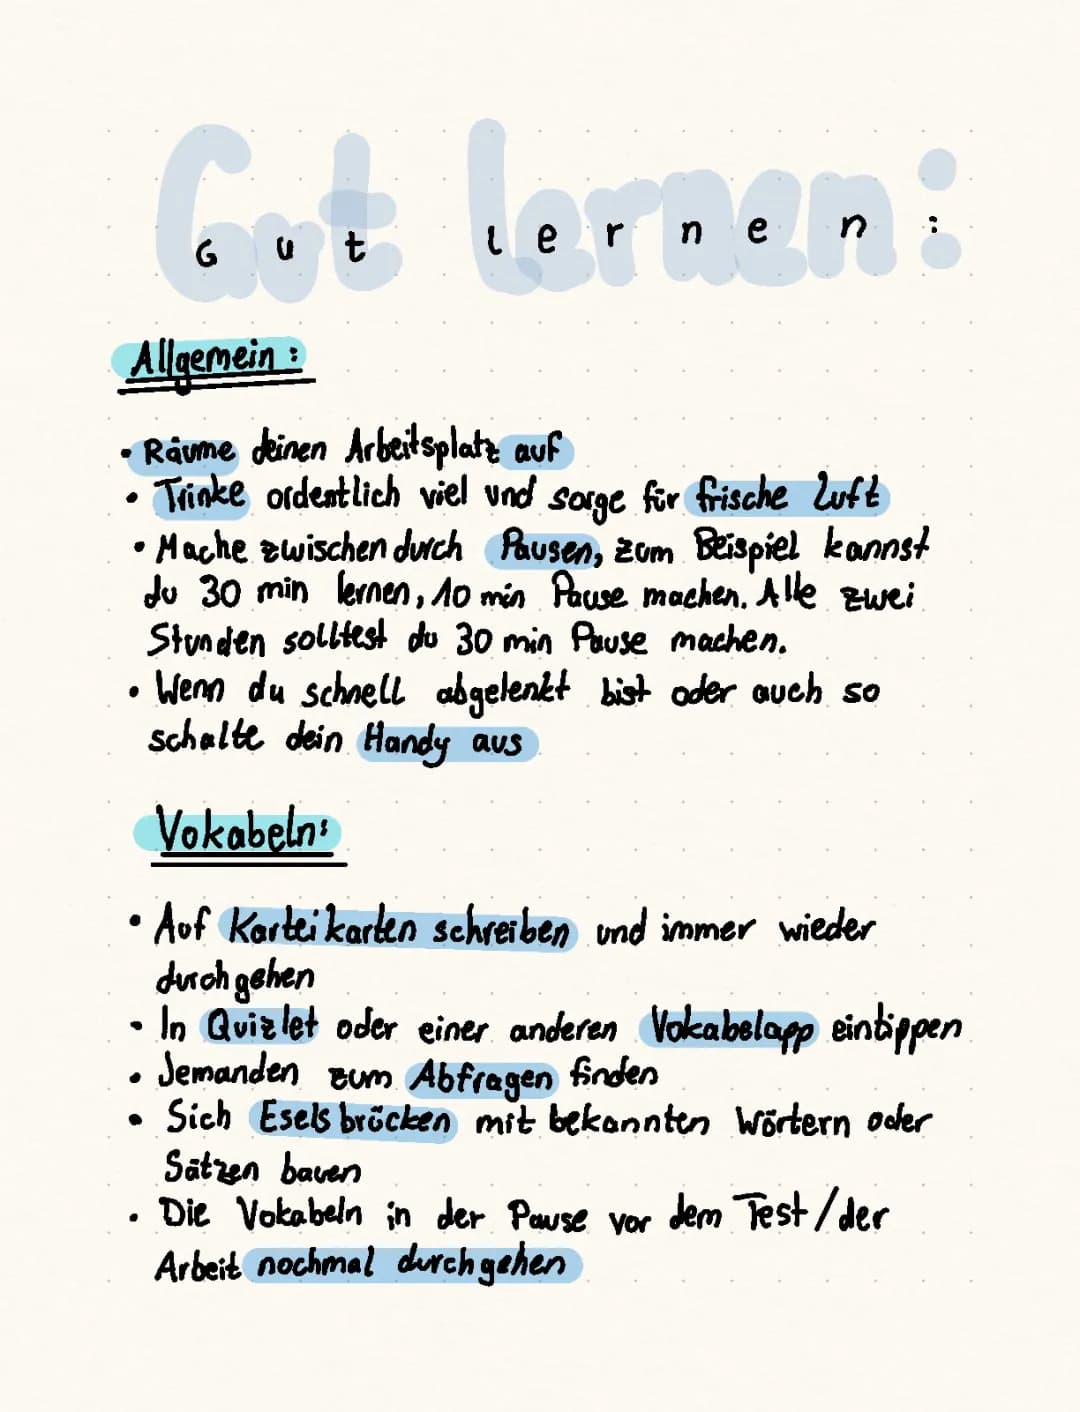 Gut lernen:
Gut lernen:
Allgemein:
• Räume deinen Arbeitsplatz auf
• Trinke ordentlich viel und sorge für frische Luft
• Mache zwischen durch Pausen, zum Beispiel kannst
du 30 min lernen, 10 min Pause machen. Alle zwei
Stunden solltest du 30 min Pause machen.
• Wenn du schnell abgelenkt bist oder auch so
schalte dein Handy aus
Vokabeln:
• Auf Karteikarten schreiben und immer wieder
durchgehen
• In Quizlet oder einer anderen Vokabelapp eintippen
• Jemanden zum Abfragen finden
• Sich Eselsbrücken mit bekannten Wörtern oder
Sätzen bauen
• Die Vokabeln in der Pause vor dem Test/der
Arbeit nochmal durchgehen